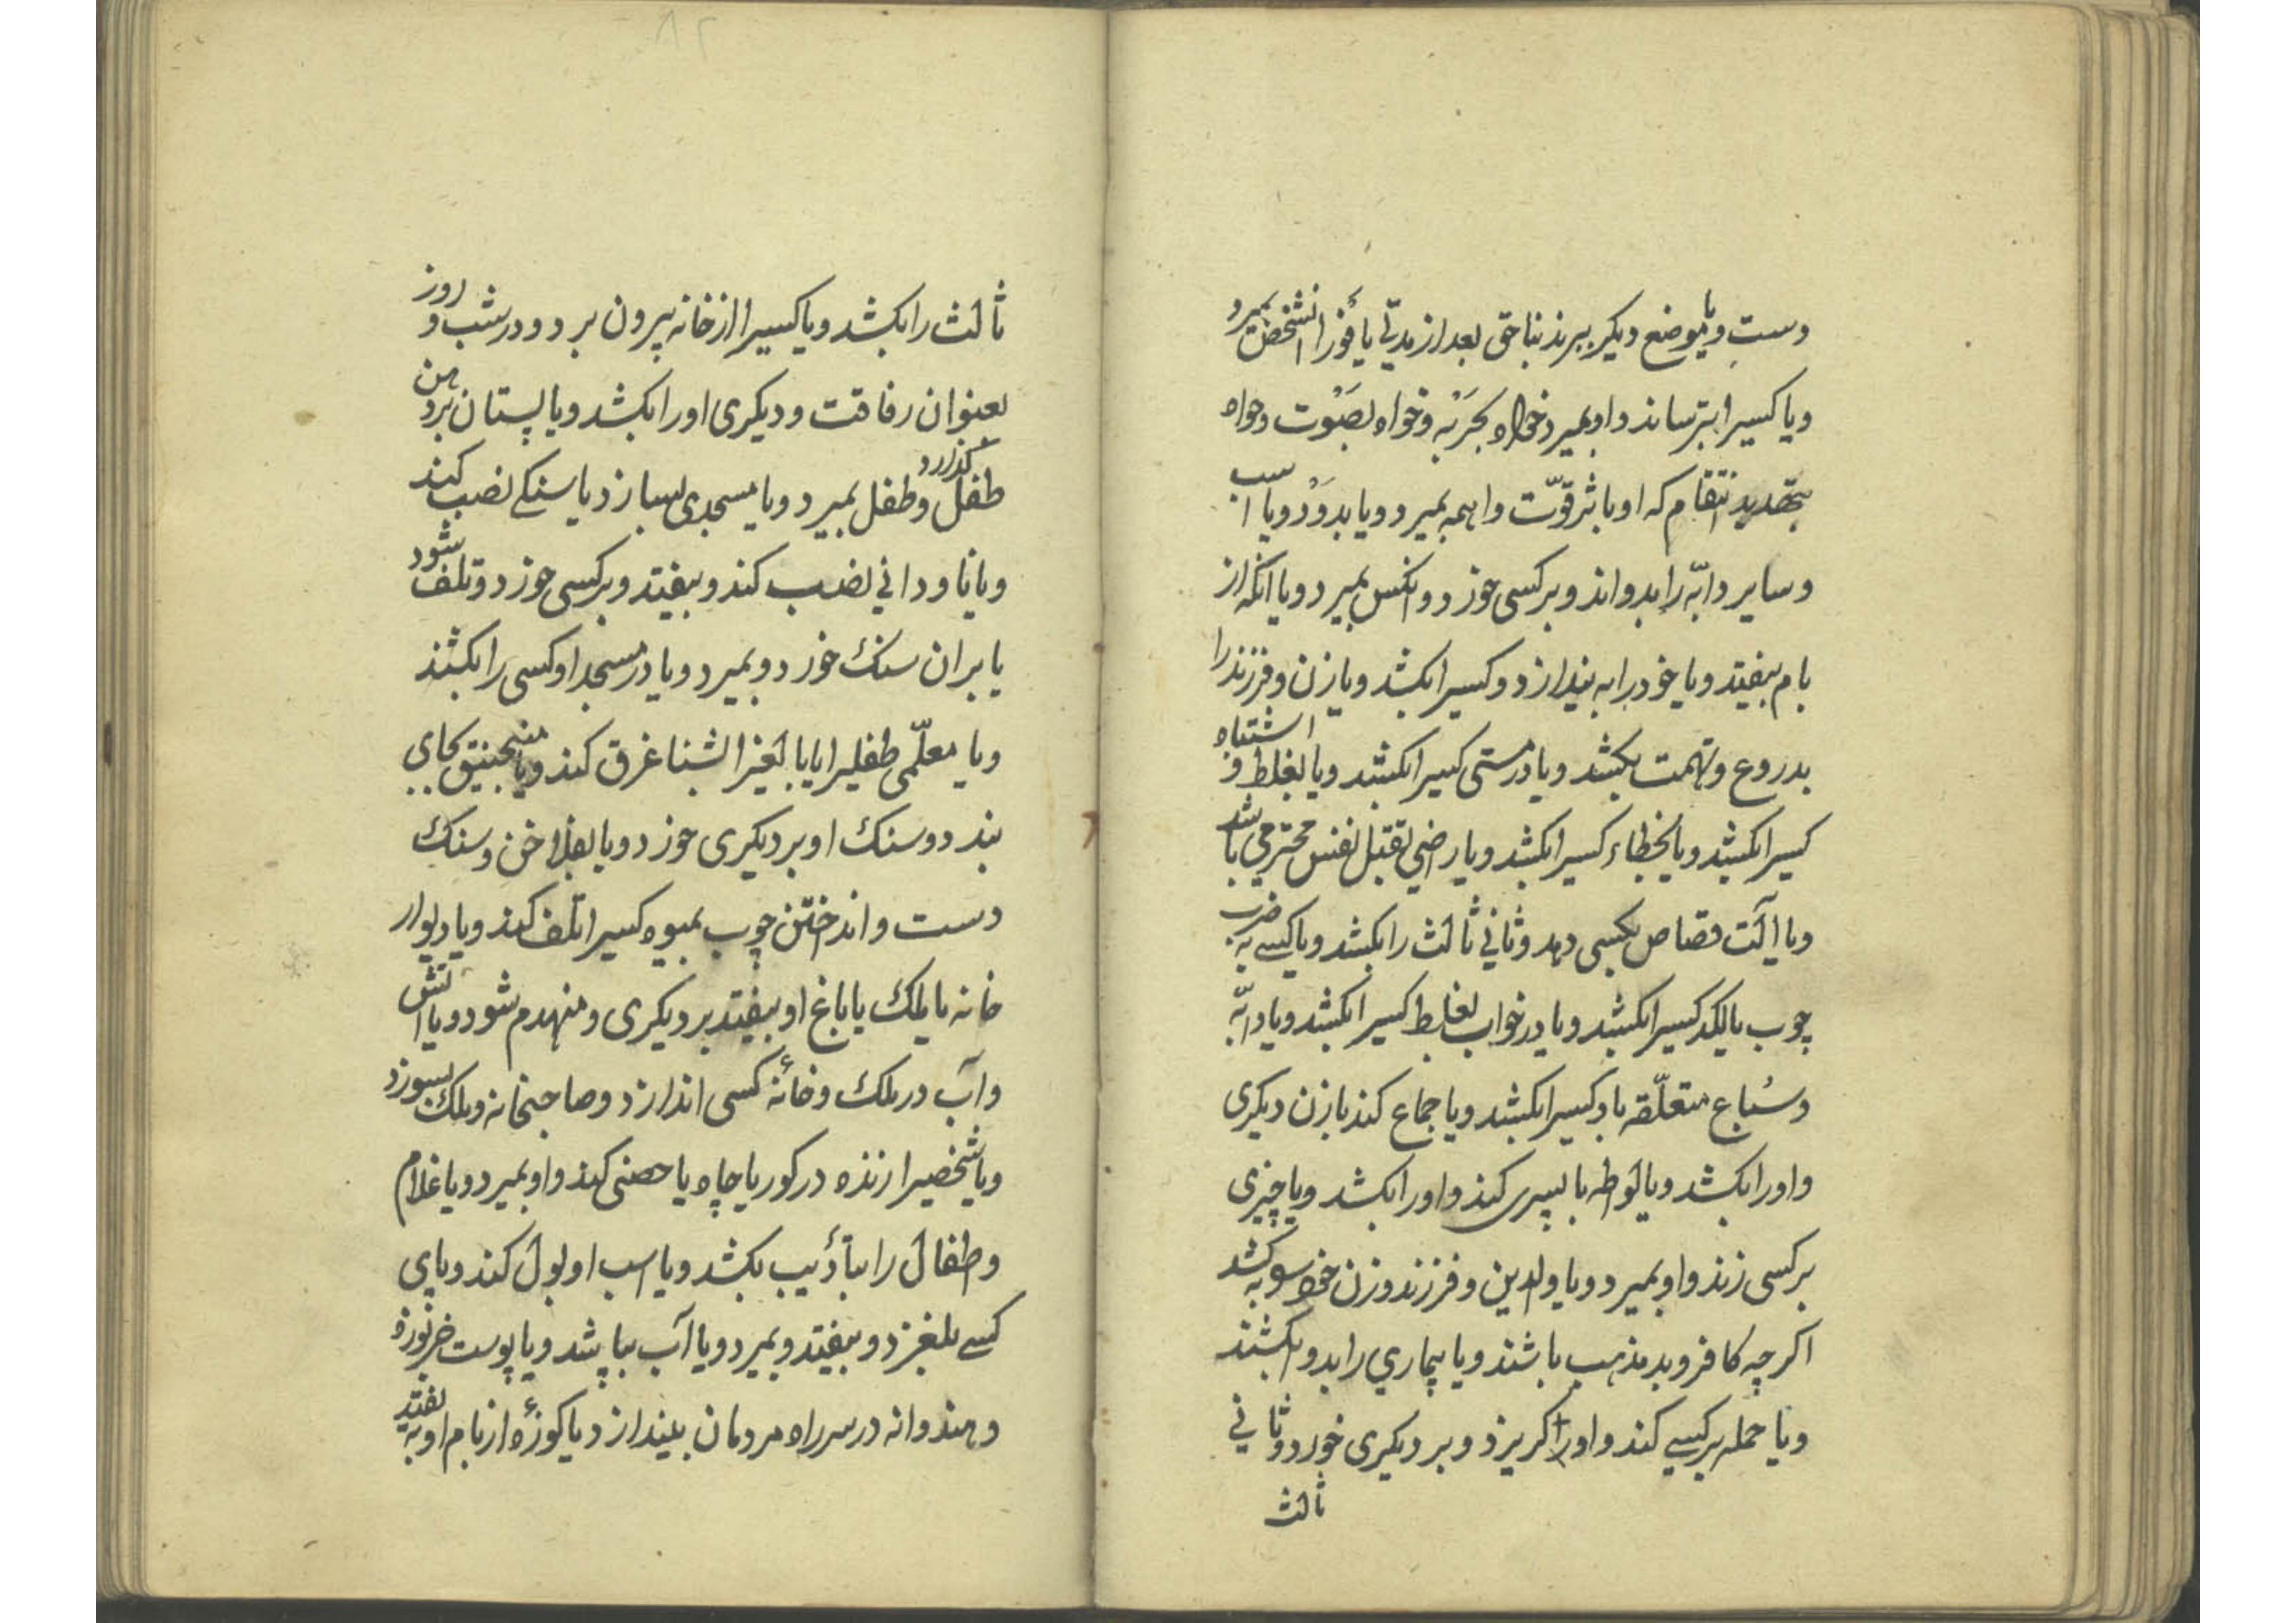 دست و یا بموضع دیگر ببرند بناحق بعد از مدتی یا فوراً انشخص بمیرد
و یا کسیرا بترساند و او بمیرد خواه بحَربَه و خواه بصَوْت و خواه
بتهدید انتقام که او باثر قوّت واهمه بمیرد و یا بدوَد و یا اسب
و سایر دابّه را بدواند و بر کسی خورد و انکس بمیرد و یا انکه از
بام بیفتد و یا خود را به بیندازد و کسیرا بکشد و یا زن و فرزند را
بدروغ و تهمت بکشد و یا در مستی کسیرا بکشد و یا بغلط و اشتباه
کسیرا بکشد و یا بخطاء کسیرا بکشد و یا راضی بقتل نفس محترمی باشد
و یا آلت قصاص بکسی دهد و ثانی ثالث را بکشد و یا کسی به ضرب
چوب یا لکد کسیرا بکشد و یا در خواب بغلط کسیرا بکشد و یا دابّه
و سُباع متعلّقه باو کسیرا بکشد و یا جماع کند با زن دیکری
و اورا بکشد و یا لواطه با پسری کند و اورا بکشد و یا چیزی
بر کسی زند و او بمیرد و یا والدین و فرزند و زن خود بکشد
اکر چه کافر و بد مذهب باشند و یا بیماری را بدوا بکشند
و یا حمله بر کسی کند و اورا کریزد و بر دیکری خورد و ثانی
ثالث
ثالث را بکشد و یا کسیرا از خانه بیرون برد و در شب و روز
بعنوان رفاقت و دیکری اورا بکشد و یا پستان بر دهن
طفل کذارد و طفل بمیرد و یا مسجدی بسازد یا سنکی نصب کند
و یا ناودانی نصب کند و بیفتد و بر کسی خورد و تلف شود
یا بران سنک خورد و بمیرد و یا در مسجد او کسی را بکشند
و یا معلّمی طفلیرا یا بالغیرا بشنا غرق کند و یا منجنیق بجای
بندد و سنک او بر دیکری خورد و یا بفلاخن و سنک
دست و انداختن چوب بمیوه کسیرا تلف کند و یا دیوار
خانه یا ملک یا باغ او بیفتد بر دیکری و منهدم شود و یا اتش
و آب در ملک و خانهٔ کسی اندازد و صاحبخانه و ملک بسوزد
و یا شخصیرا زنده در کور یا چاه یا حصنی کند و او بمیرد و یا غلام
و طفال را بتأدیب بکشد و یا اسب او بول کند و پای
کسی بلغزد و بیفتد و بمیرد و یا آب بپاشد و یا پوست خربوزه
و هندوانه در سر راه مردمان بیندازد یا کوزهٔ از بام او بیفتد